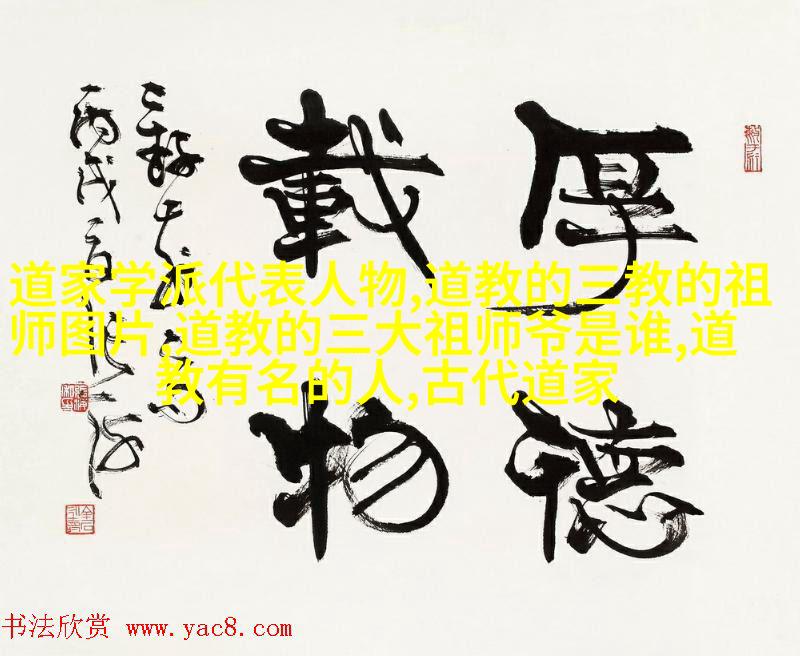 厚德
載物
丙戌
道家学派代表人物,道教的三教的祖
师图片,道教的三大祖师爷是谁,道
教有名的人,古代道家
书法欣赏 www.yac8.com